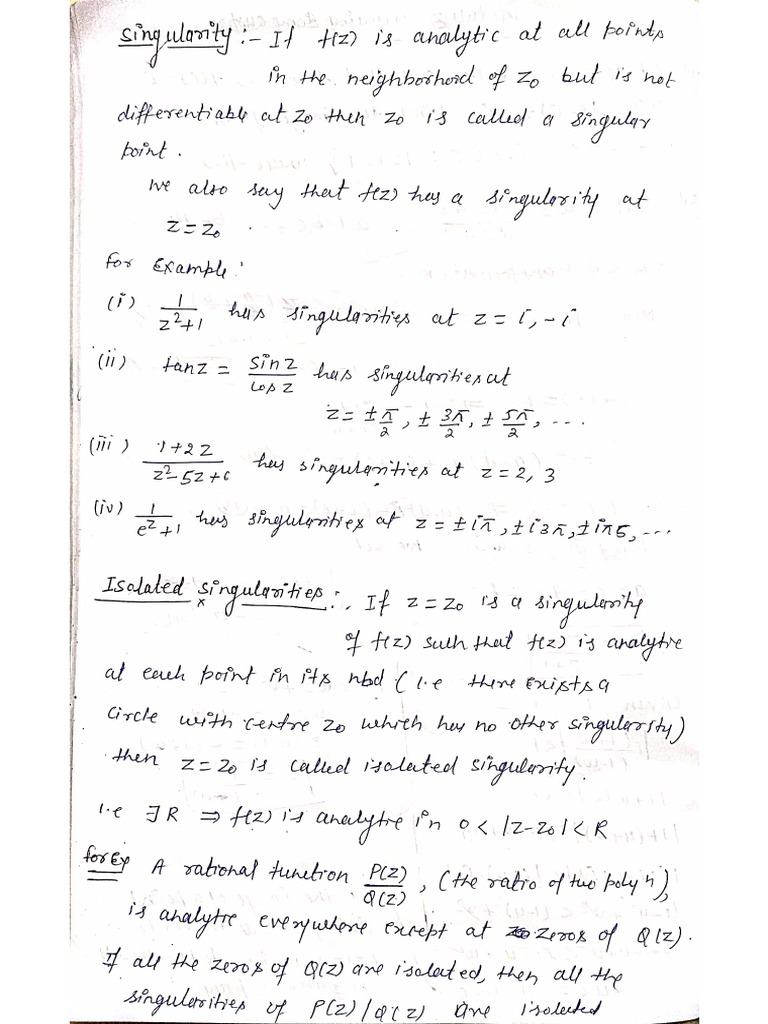 Singularity :- If f(z) is analytic at all points
in the neighborhood of z₀ but is not
differentiable at z₀ then z₀ is called a singular
point.
We also say that f(z) has a singularity at
z = z₀ .
for Example:
(i) 1/(z²+1) has singularities at z = i, -i
(ii) tanz = sin z/cos z has singularities at
z = ± π/2, ± 3π/2, ± 5π/2, ...
(iii) 1+2z/(z²-5z+6) has singularities at z = 2, 3
(iv) 1/(e^z+1) has singularities at z = ±iπ, ±i3π, ±iπ5, ...
Isolated singularities :. If z = z₀ is a singularity
of f(z) such that f(z) is analytic
at each point in its nbd (i.e there exists a
circle with centre z₀ which has no other singularity)
then z = z₀ is called isolated singularity.
i.e ∃ R ⇒ f(z) is analytic in 0 < |z-z₀| < R
for Ex A rational function P(z)/Q(z), (the ratio of two polyⁿ),
is analytic everywhere except at zeros of Q(z).
If all the zeros of Q(z) are isolated, then all the
singularities of P(z)/Q(z) are isolated